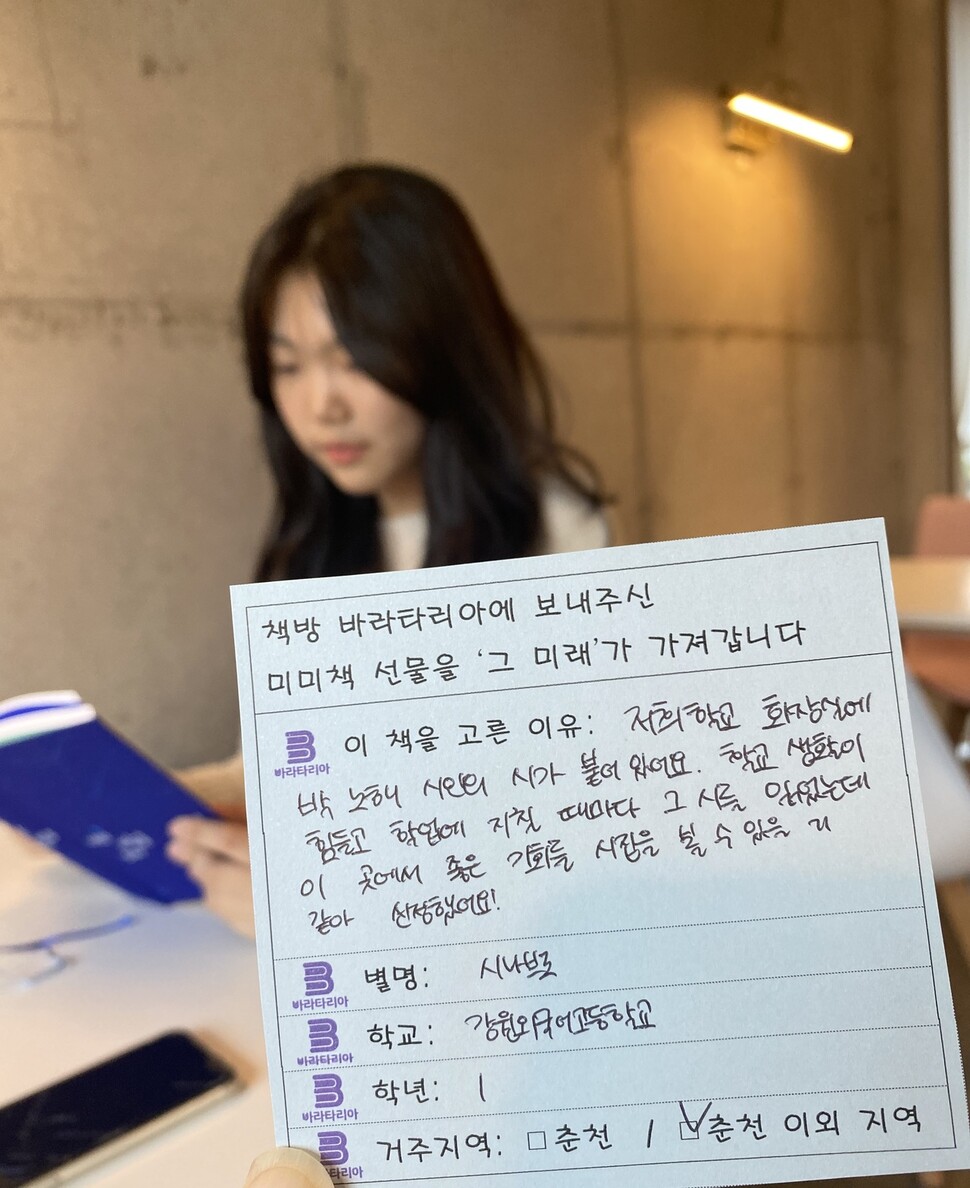 책방 바라타리아에 보내주신
미미책 선물을 '그 미래'가 가져갑니다
바라타리아 이 책을 고른 이유: 저희학교 화장실에
박노해 시인의 시가 붙어 있어요. 학교 생활이
힘들고 학업에 지칠 때마다 그 시를 읽었는데
이 곳에서 좋은 기회를 시집을 볼 수 있을 거
같아 선정했어요!
바라타리아 별명: 시나브로
바라타리아 학교: 강원외국어고등학교
바라타리아 학년: 1
바라타리아 거주지역: □ 춘천 / ☑ 춘천 이외 지역